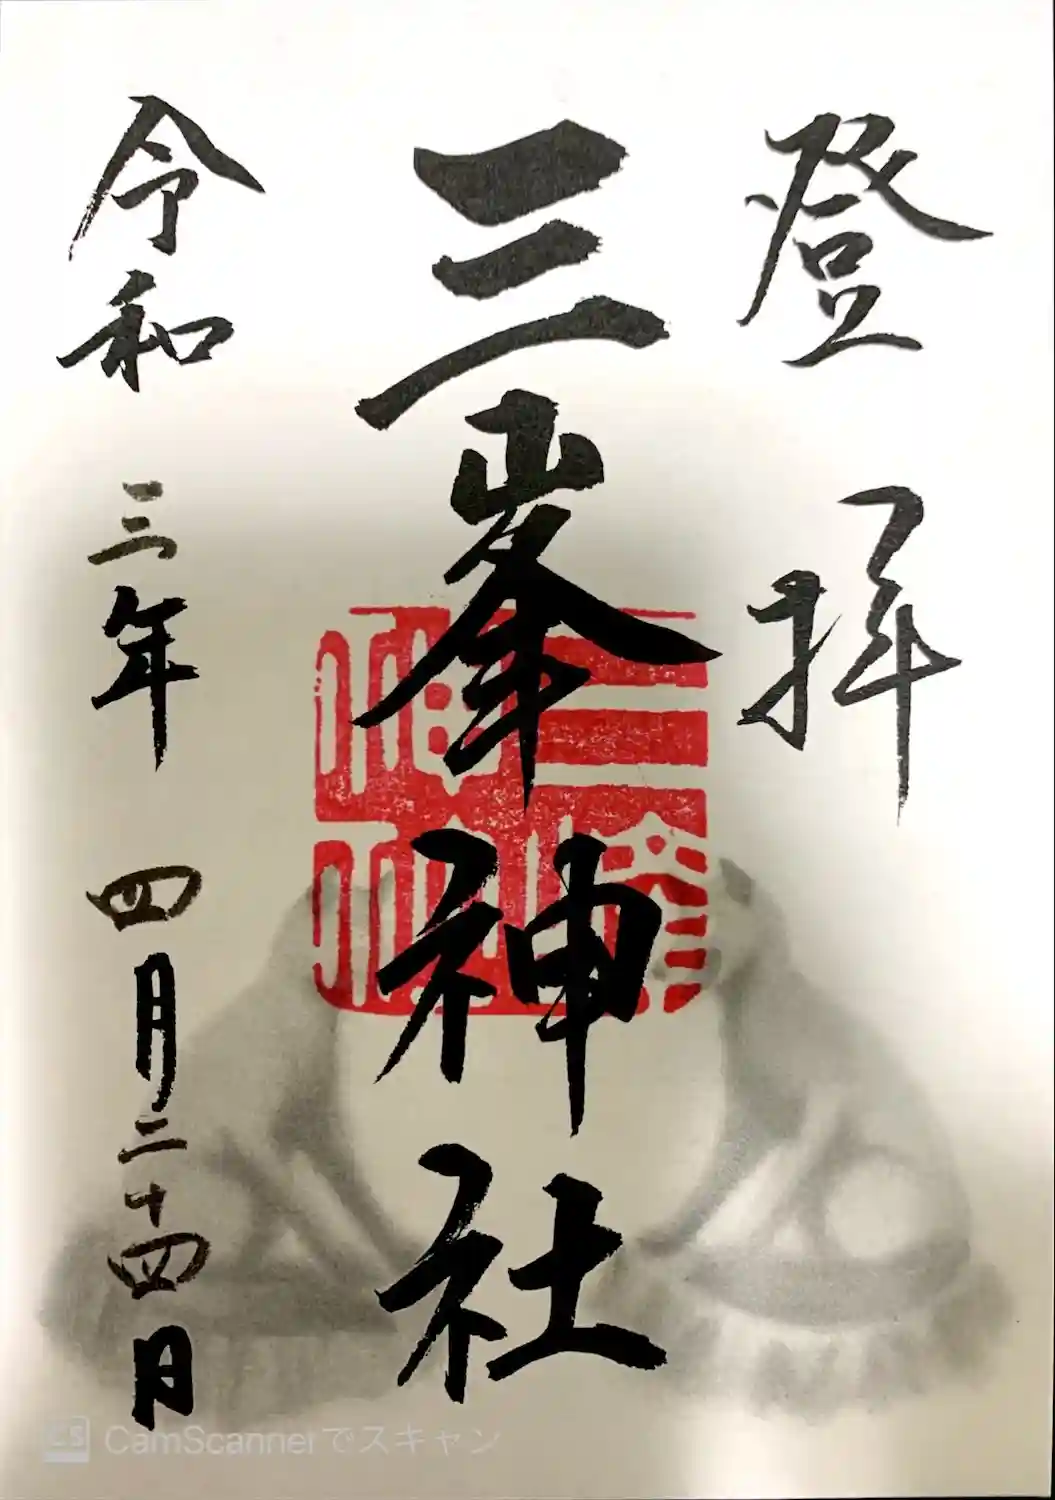 登拝
三峯神社
令和三年四月二十四日
CS CamScannerでスキャン